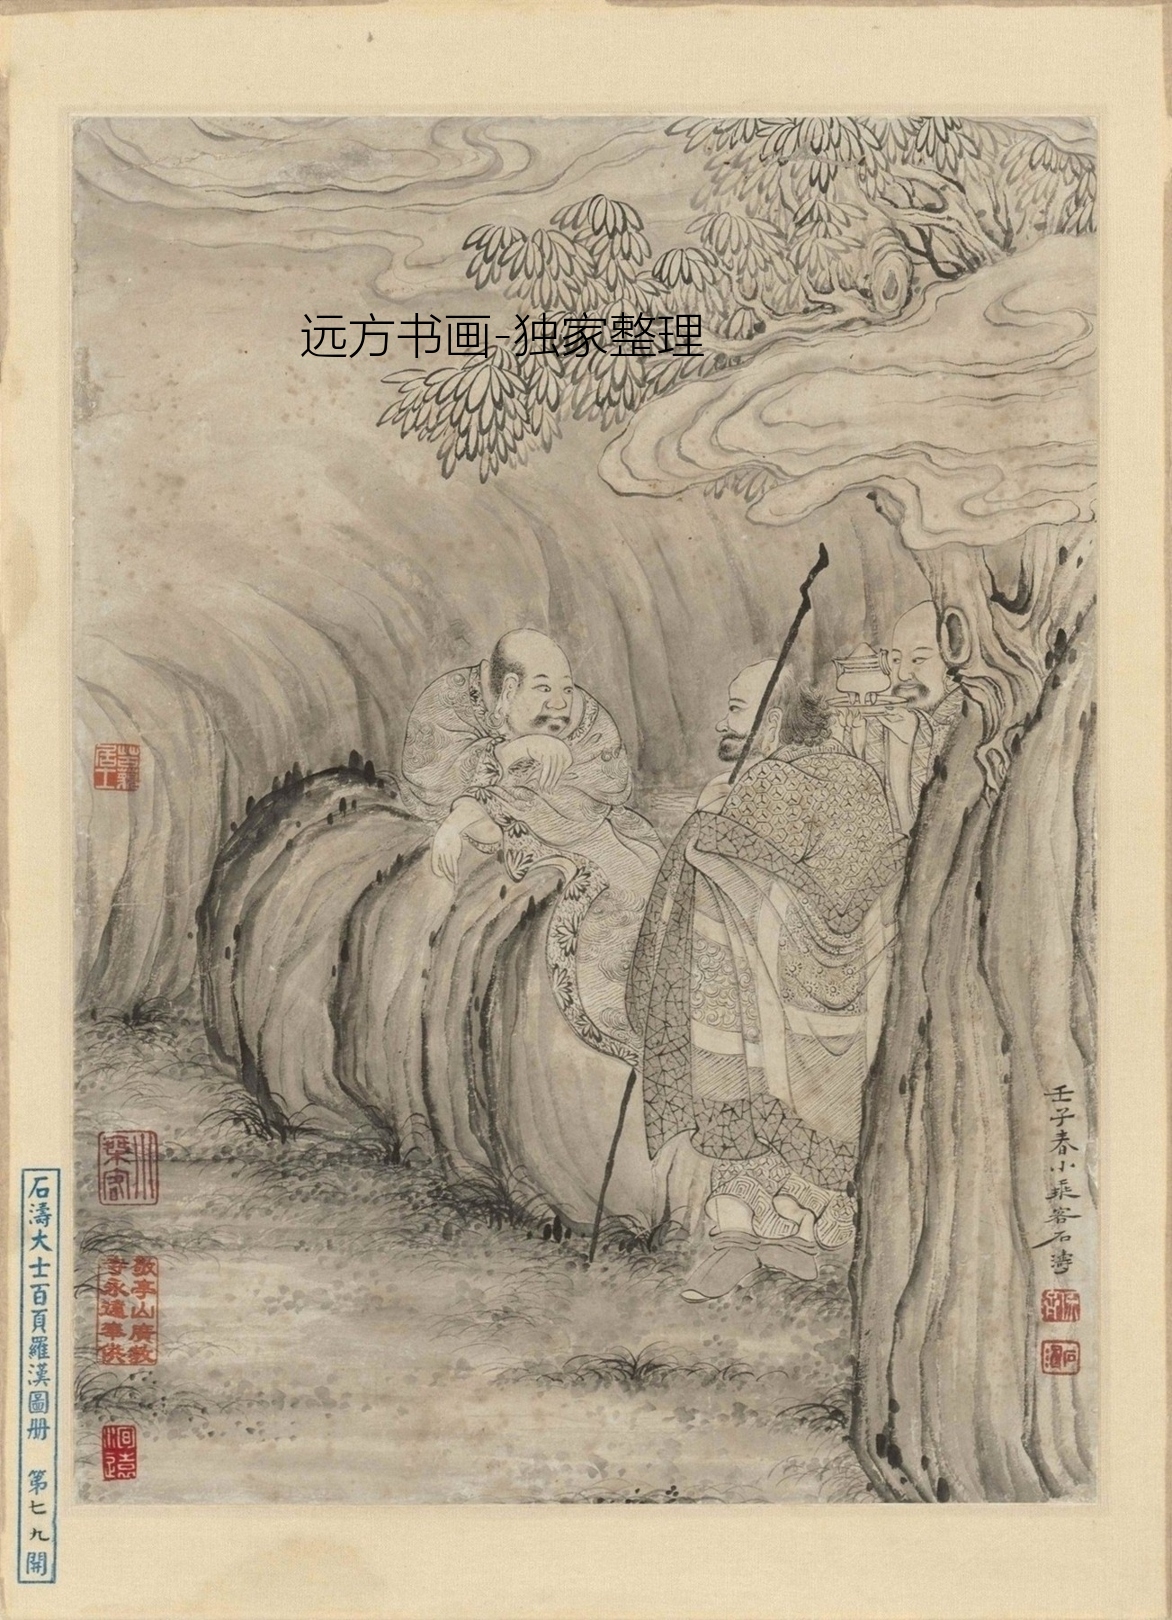 远方书画-独家整理
壬子春小乘客石濤
石濤
敬亭山廣教
寺永遠奉供
石濤大士百頁羅漢圖册 第七九開